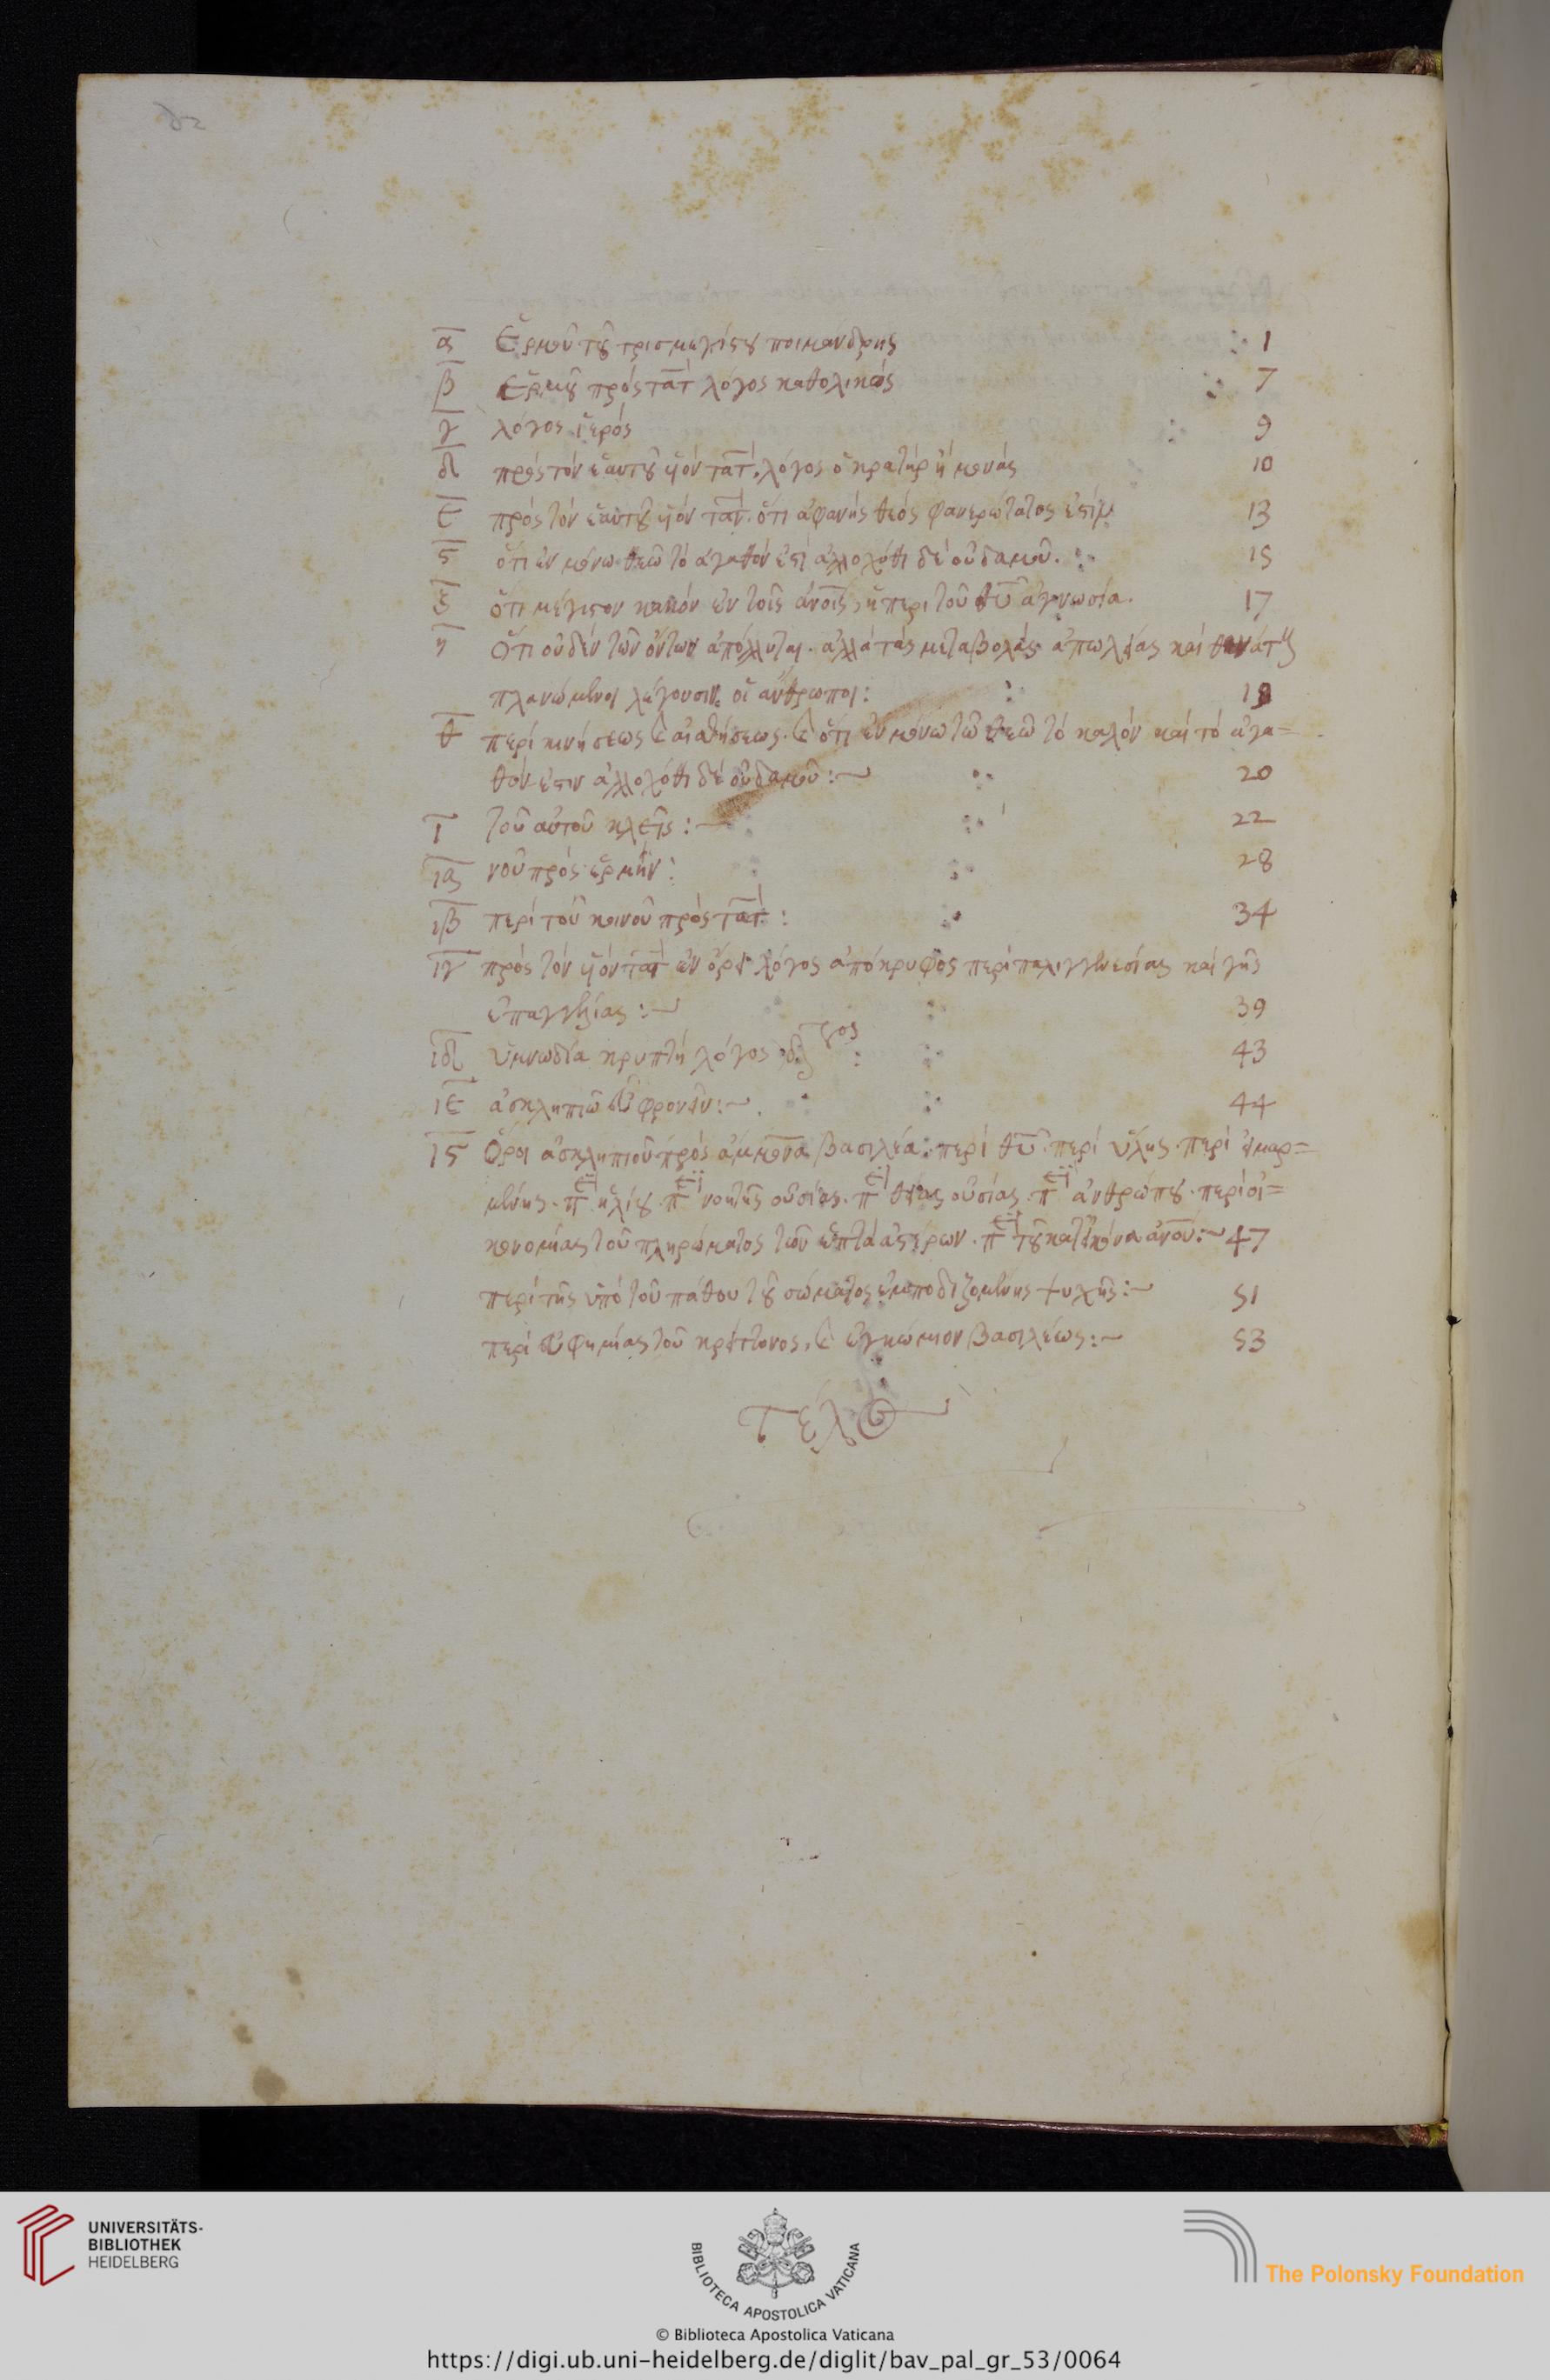 α Ἑρμοῦ τοῦ τρισμεγίστου ποιμάνδρης : 1
β Ἑρμοῦ πρὸς τὰτ λόγος καθολικός : 7
γ λόγος ἱερός : 9
δ πρὸς τὸν ἑαυτοῦ υἱὸν τάτ. λόγος ὁ κρατὴρ ἡ μονάς 10
ε πρὸς τὸν ἑαυτοῦ υἱὸν τάτ. ὅτι ἀφανὴς θεὸς φανερώτατος ἐστί 13
ς ὅτι ἐν μόνω θεῶ τὸ ἀγαθόν ἐστι ἀλλαχόθι δὲ οὐδαμοῦ. : 15
ζ ὅτι μέγιστον κακὸν ἐν τοῖς ἀνοις, ἡ περὶ τοῦ θυ ἀγνωσία. 17
η Ὅτι οὐδὲν τῶν ὄντων ἀπόλλυται. ἀλλὰ τὰς μεταβολὰς ἀπωλείας καὶ θανάτους
πλανώμενοι λέγουσιν οἱ ἄνθρωποι : 19
θ περὶ κινήσεως κ αἰσθήσεως. κ ὅτι ἐν μόνω τῶ θεῶ τὸ καλὸν καὶ τὸ ἀγα=
θόν ἐστιν ἀλλαχόθι δὲ οὐδαμοῦ :~ 20
ι τοῦ αὐτοῦ κλεῖς :~ 22
ια νοῦ πρὸς ἑρμῆν : 28
ιβ περὶ τοῦ κοινοῦ πρὸς τάτ : 34
ιγ πρὸς τὸν υἱὸν τὰτ ἐν ὄρει λόγος ἀπόκρυφος περὶ παλιγγενεσίας καὶ γῆς
ἐπαγγελίας :~ 39
ιδ ὑμνωδία κρυπτὴ λόγος : 43
ιε ἀσκληπιῶ εὖ φρονεῖν :~ 44
ις Ὅροι ἀσκληπιοῦ πρὸς ἄμμονα βασιλέα. περὶ θυ. περὶ ὕλης. περὶ εἱμαρ=
μένης. περὶ ἡλίου. περὶ νοητῆς οὐσίας. περὶ θείας οὐσίας. περὶ ἀνθρώπου. περὶ οἰ=
κονομίας τοῦ πληρώματος τῶν ἑπτὰ ἀστέρων. περὶ τοῦ κατ' εἰκόνα ἀνου :~ 47
περὶ τῆς ὑπὸ τοῦ πάθου τοῦ σώματος ἐμποδιζομένης ψυχῆς :~ 51
περὶ εὐφημίας τοῦ κρείττονος, κ ἐγκώμιον βασιλέως :~ 53
τέλος
UNIVERSITÄTS-
BIBLIOTHEK
HEIDELBERG
BIBLIOTECA APOSTOLICA VATICANA
The Polonsky Foundation
© Biblioteca Apostolica Vaticana
https://digi.ub.uni-heidelberg.de/diglit/bav_pal_gr_53/0064